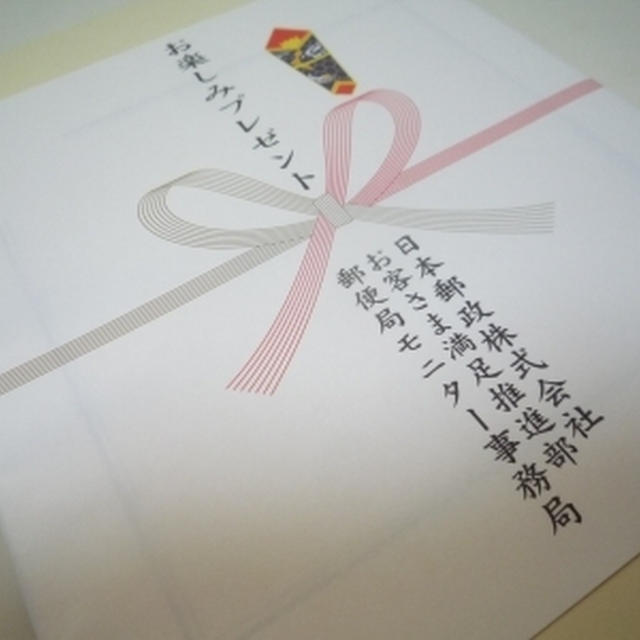 お楽しみプレゼント
日本郵政株式会社
お客さま満足推進部
郵便局モニター事務局